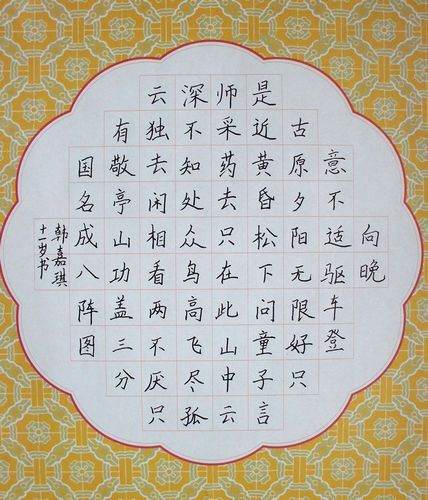 向晚
意不适驱车登
古原夕阳无限好只
是近黄昏松下问童子言
师采药去只在此山中云
深不知处众鸟高飞尽孤
云独去闲相看两不厌只
有敬亭山功盖三分
国名成八阵图
韩嘉琪
十一岁书